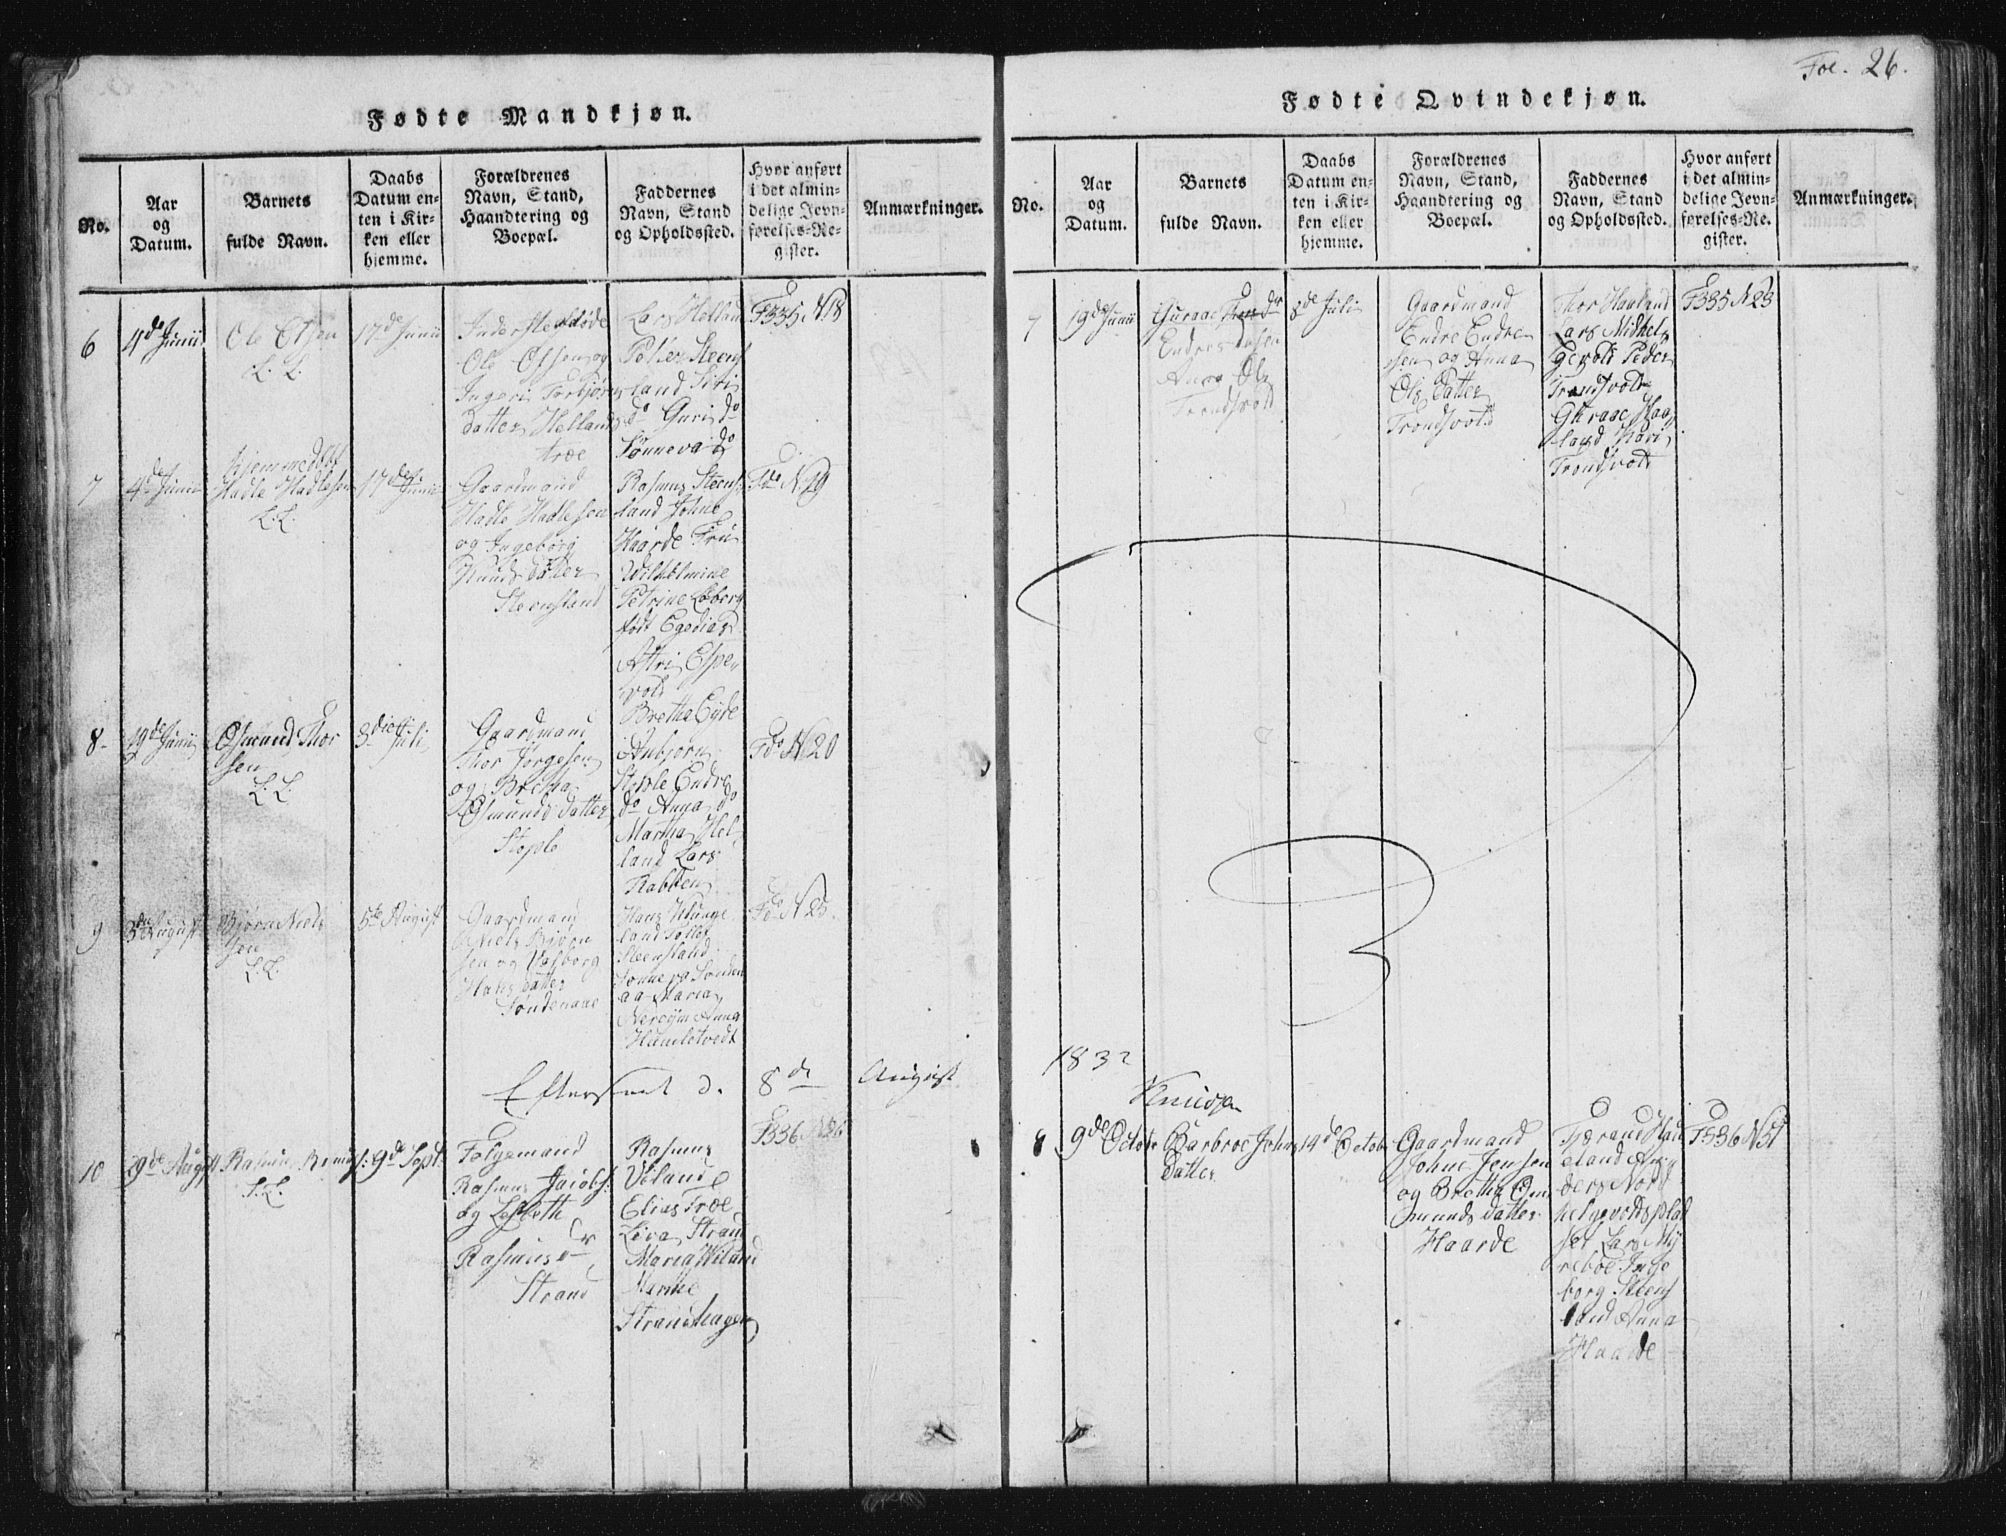 Fødte Mandkjøn.
No.
Aar
og
Datum.
Barnets
fulde Navn.
Daabs
Datum en-
ten i Kir-
ken eller
hjemme.
Forældrenes
Navn, Stand,
Haandtering og
Boepæl.
Faddernes
Navn, Stand
og Opholdssted.
Hvor anført
i det almin-
delige Jevn-
førelses-Re-
gister.
Anmærkninger.
6
4de Junii
Ole Olsen
L. L.
17de Junii
Ole Olsen og
Ingeri Torbjørns
datter Hellands
træe
Lars Helland
Peder Steens
land Siri
do Guri do
Sønneva do
F335 N18
7
4de Junii
Hjemmedøbt
Hadle Hadlesen
L. L.
17de Junii
Gaardmand
Hadle Hadlesen
og Ingeborg
Knuds datter
Steensland
Rasmus Steens
land Johne
Haarde Fru
Wilhelmine
Petrine Løberg
født Egedias
Astri Espe
vold
Bretha Eyde
F do N19
8
19de Junii
Osmund Thor
sen
L. L.
3die Juli
Gaardmand
Thor Jørgesen
og Bretha
Osmunds datter
Stople
Anbjørn
Stople Endre
do Anna do
Martha Hel
land Lars
Rabben
F do N20
9
3die August
Bjørn Niels
sen
L. L.
5te August
Gaardmand
Niels Bjørn
sen og Valborg
Hans datter
Søndenaae
Hans Klunge
land Tollef
Steensland
Sønneva Sønden
aa Maria
Nereim Anna
Humletvedt
F do N25.
Eftersent d. 8de August
10
29de August
Rasmus Rasmuss:
L. L.
9de Sept.
Følgemand
Rasmus Jacobs:
og Lisbeth
Rasmusdr
Strand
Rasmus
Viland
Elias Træe
Liva Strand
Maria Wiland
Marthe
Strandhagen
F336 N26
Fol. 26.
Fødte Qvindekjøn.
No.
Aar
og
Datum.
Barnets
fulde Navn.
Daabs
Datum en-
ten i Kir-
ken eller
hjemme.
Forældrenes
Navn, Stand,
Haandtering og
Boepæl.
Faddernes
Navn, Stand
og Opholdssted.
Hvor anført
i det almin-
delige Jevn-
førelses-Re-
gister.
Anmærkninger.
7
19de Junii
Guraae
Anna Ols
Trondsvold
3de Juli
Gaardmand
Endre Endre
sen og Anna
Ols datter
Trondsvold
Thor Haaland
Lars Mikkels
Peder
Trondsvold
Guraae Haa
land Kari
Trondsvold
F335 N23
1832
Knudsen
8
9de Octobr
Barbroe Johns
datter
14de Octobr
Gaardmand
Johne Jensen
og Bretha Os
munds datter
Haarde
Tjærand Had
eland An
ders Nord
helgevolds plad
set Lars My
reboe Inge
borg Steens
land Anna
Haarde
F336 N31